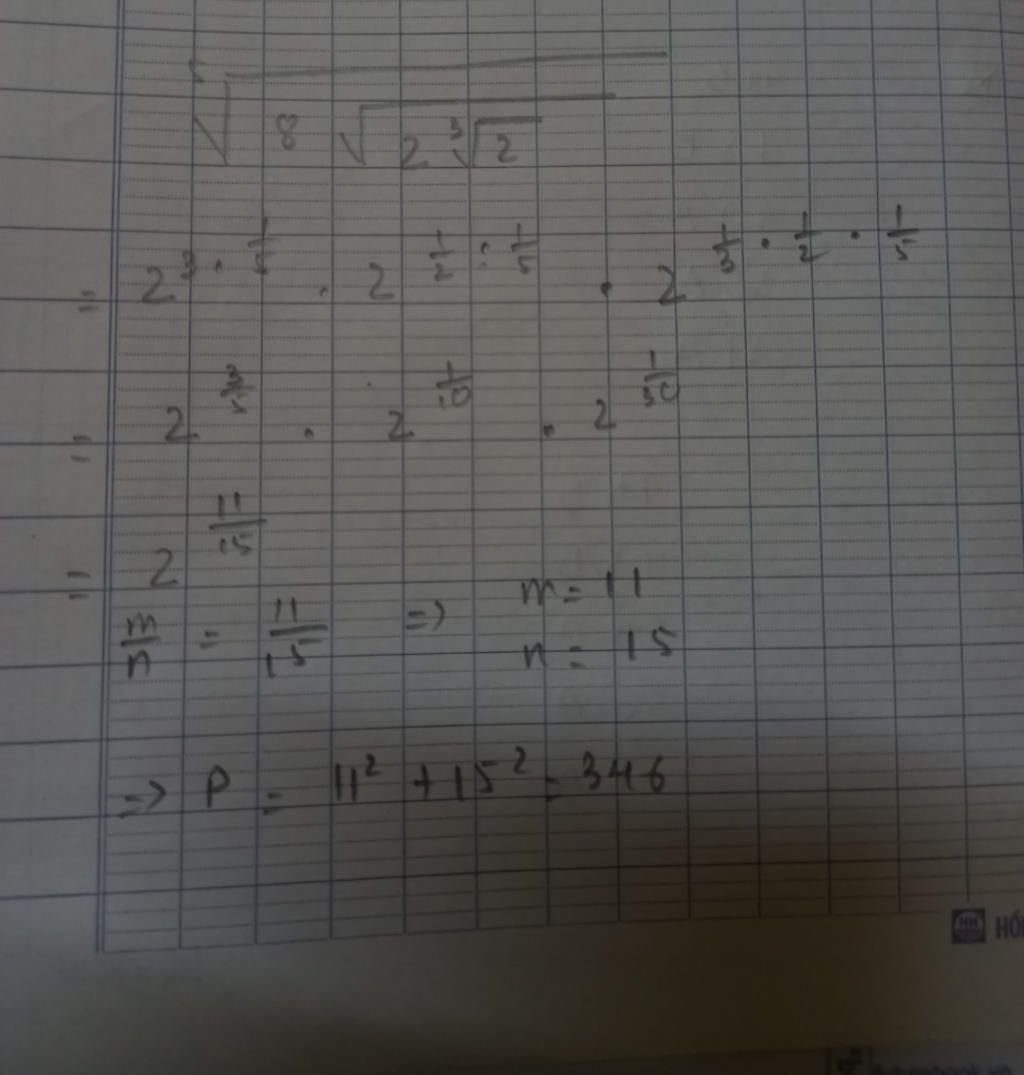 ⁵√(8 √(2 ³√2))
= 2^(3 · 1/5) . 2^(1/2 : 1/5) . 2^(1/3 · 1/2 · 1/5)
= 2^(3/5) . 2^(1/10) . 2^(1/30)
= 2^(11/15)
m/n = 11/15 => m = 11
n = 15
=> P = 11² + 15² = 346
HH